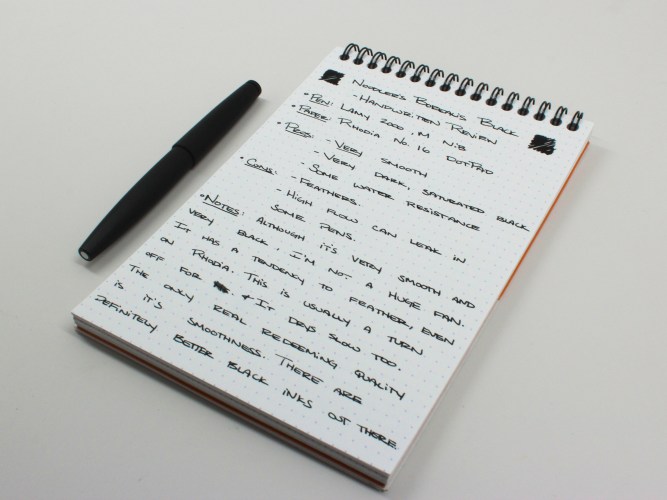 NOODLER'S BORGHA'S BLACK
- HANDWRITTEN REVIEW
• PEN: LAMY 2000, M NIB
• PAPER: RHODIA No. 16 DOTPAD
• PROS: - VERY SMOOTH
- VERY DARK, SATURATED BLACK
- SOME WATER RESISTANCE
• CONS: - FEATHERS.
- HIGH FLOW CAN LEAK IN
SOME PENS.
• NOTES: ALTHOUGH IT'S VERY SMOOTH AND
VERY BLACK, I'M NOT A HUGE FAN.
IT HAS A TENDENCY TO FEATHER, EVEN
ON RHODIA. THIS IS USUALLY A TURN
OFF FOR & IT DRYS SLOW TOO.
THE ONLY REAL REDEEMING QUALITY
IS IT'S SMOOTHNESS. THERE ARE
DEFINITELY BETTER BLACK INKS OUT THERE